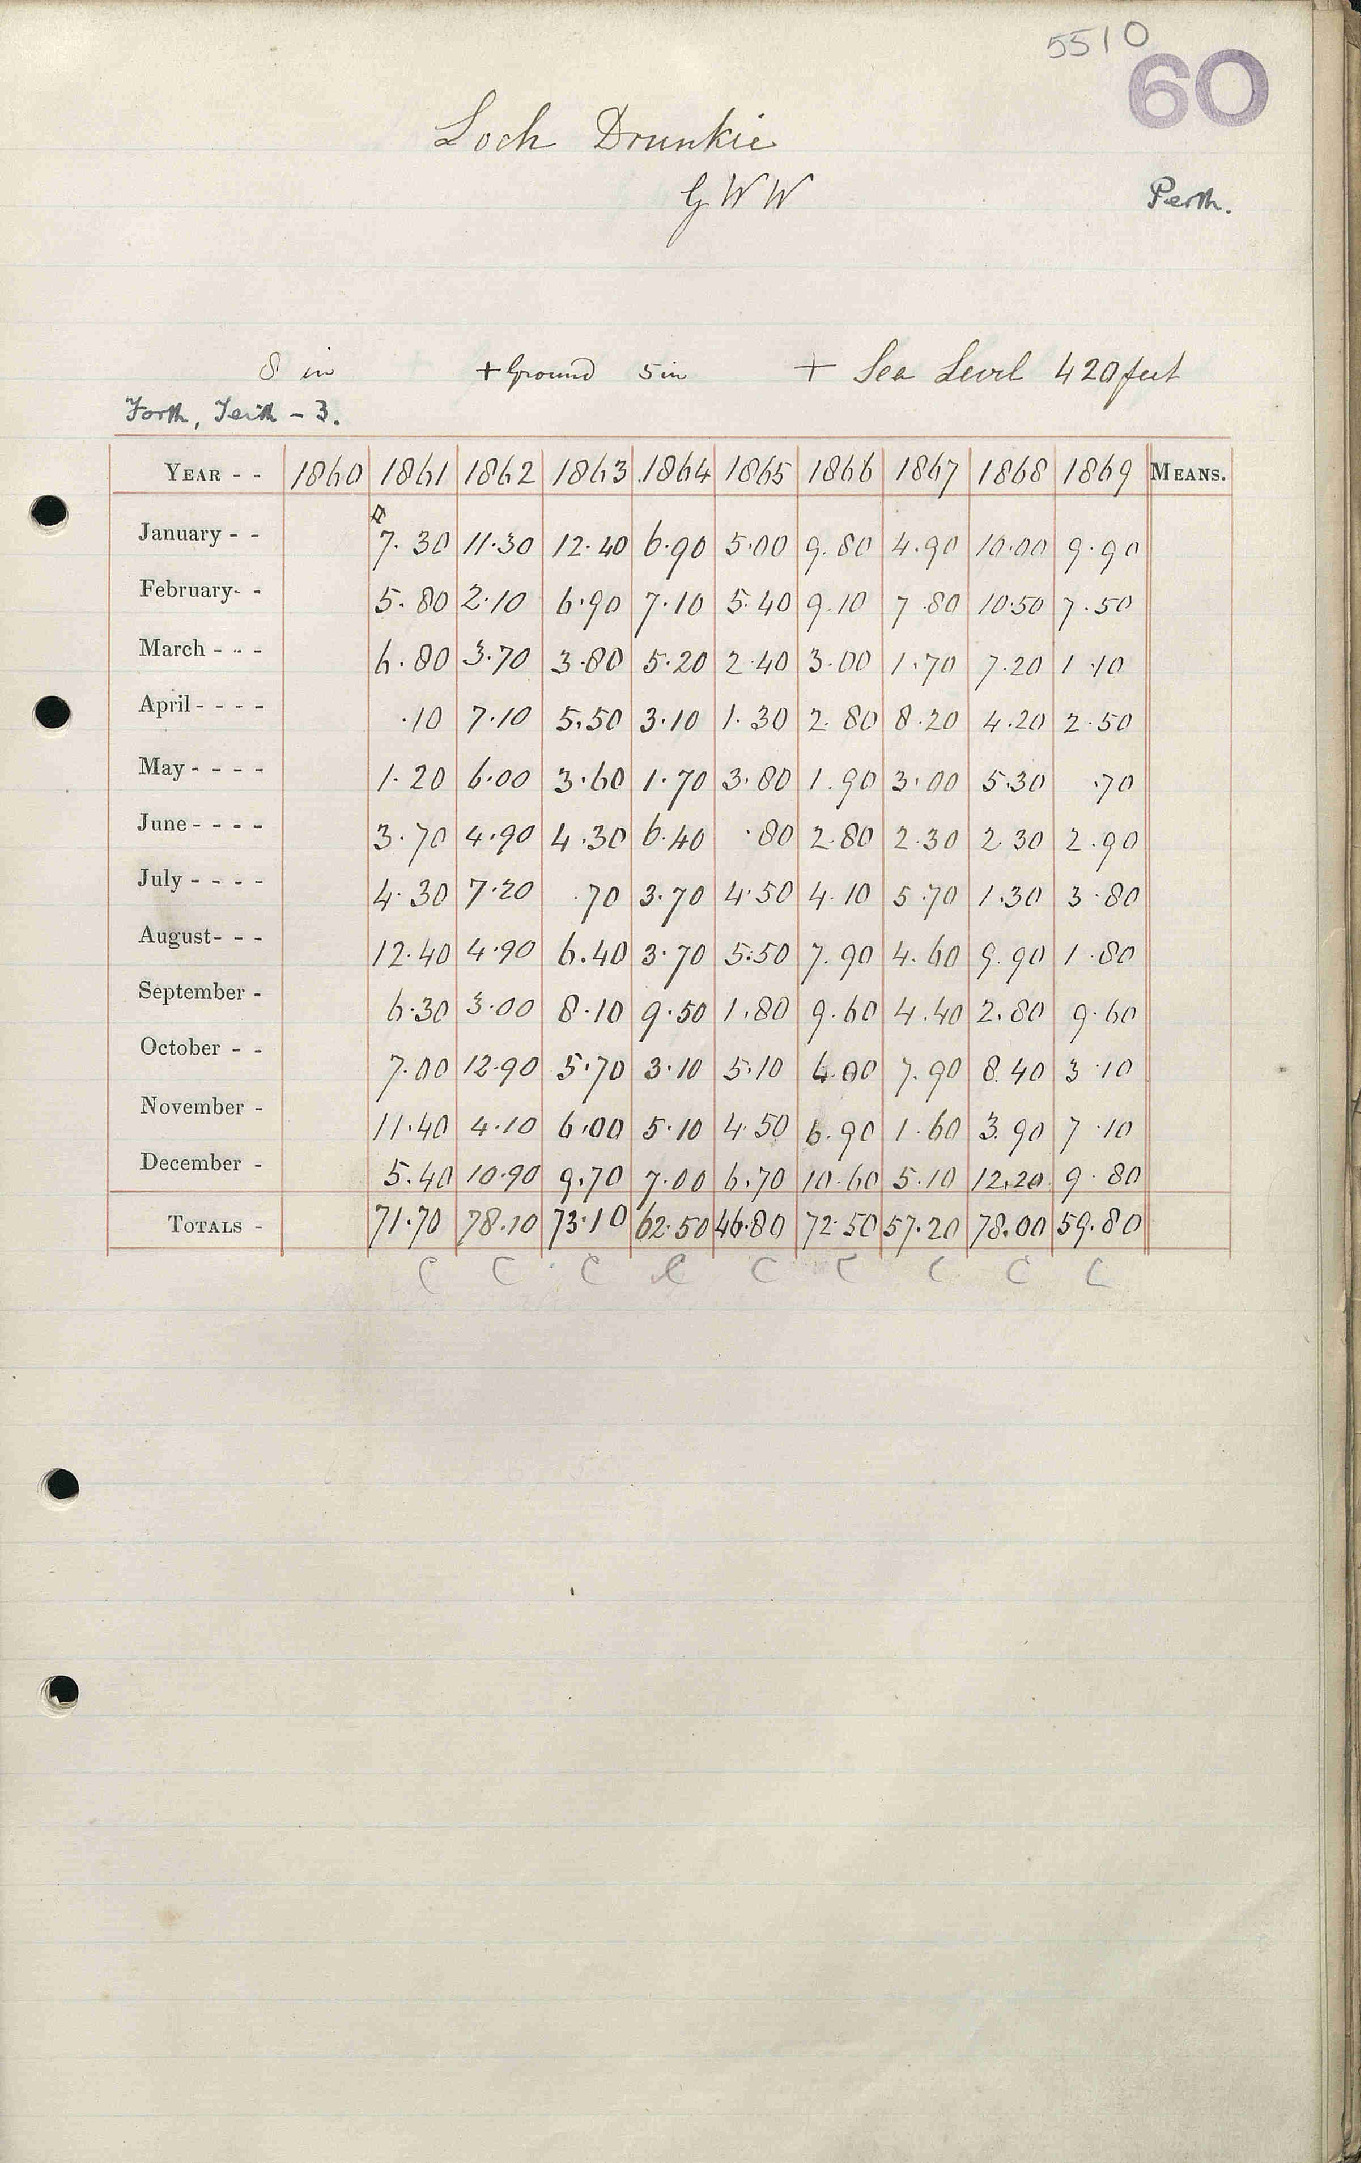 5510
60
Loch Drunkie
G W W
Perth.
8 in + Ground 5 in + Sea Level 420 feet
Forth, Teith - 3.
YEAR - - 1860 1861 1862 1863 1864 1865 1866 1867 1868 1869 MEANS.
January - - 7.30 11.30 12.40 6.90 5.00 9.80 4.90 10.00 9.90
February- - 5.80 2.10 6.90 7.10 5.40 9.10 7.80 10.50 7.50
March - - - 6.80 3.70 3.80 5.20 2.40 3.00 1.70 7.20 1.10
April - - - - .10 7.10 5.50 3.10 1.30 2.80 8.20 4.20 2.50
May - - - - 1.20 6.00 3.60 1.70 3.80 1.90 3.00 5.30 .70
June - - - - 3.70 4.90 4.30 6.40 .80 2.80 2.30 2.30 2.90
July - - - - 4.30 7.20 .70 3.70 4.50 4.10 5.70 1.30 3.80
August- - - 12.40 4.90 6.40 3.70 5.50 7.90 4.60 9.90 1.80
September - 6.30 3.00 8.10 9.50 1.80 9.60 4.40 2.80 9.60
October - - 7.00 12.90 5.70 3.10 5.10 4.00 7.90 8.40 3.10
November - 11.40 4.10 6.00 5.10 4.50 6.90 1.60 3.90 7.10
December - 5.40 10.90 9.70 7.00 6.70 10.60 5.10 12.20 9.80
TOTALS - 71.70 78.10 73.10 62.50 46.80 72.50 57.20 78.00 59.80
C C C C C C C C C